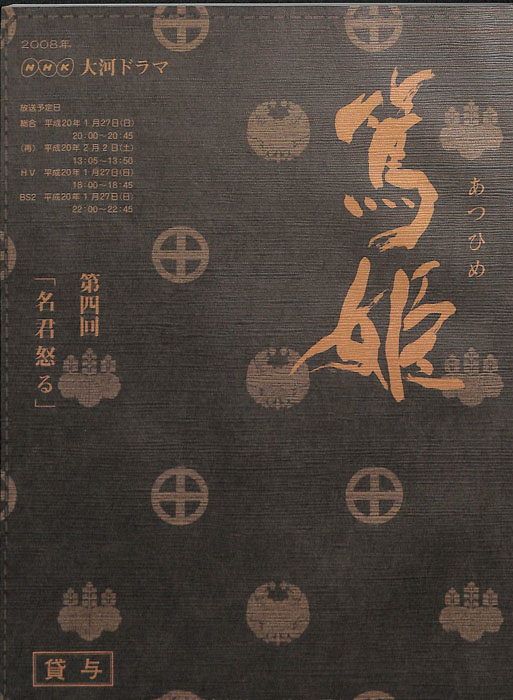 2008年
NHK 大河ドラマ
放送予定日
総合 平成20年1月27日(日)
20:00〜20:45
(再) 平成20年2月2日(土)
13:05〜13:50
HV 平成20年1月27日(日)
18:00〜18:45
BS2 平成20年1月27日(日)
22:00〜22:45
篤姫
あつひめ
第四回
「名君怒る」
貸与